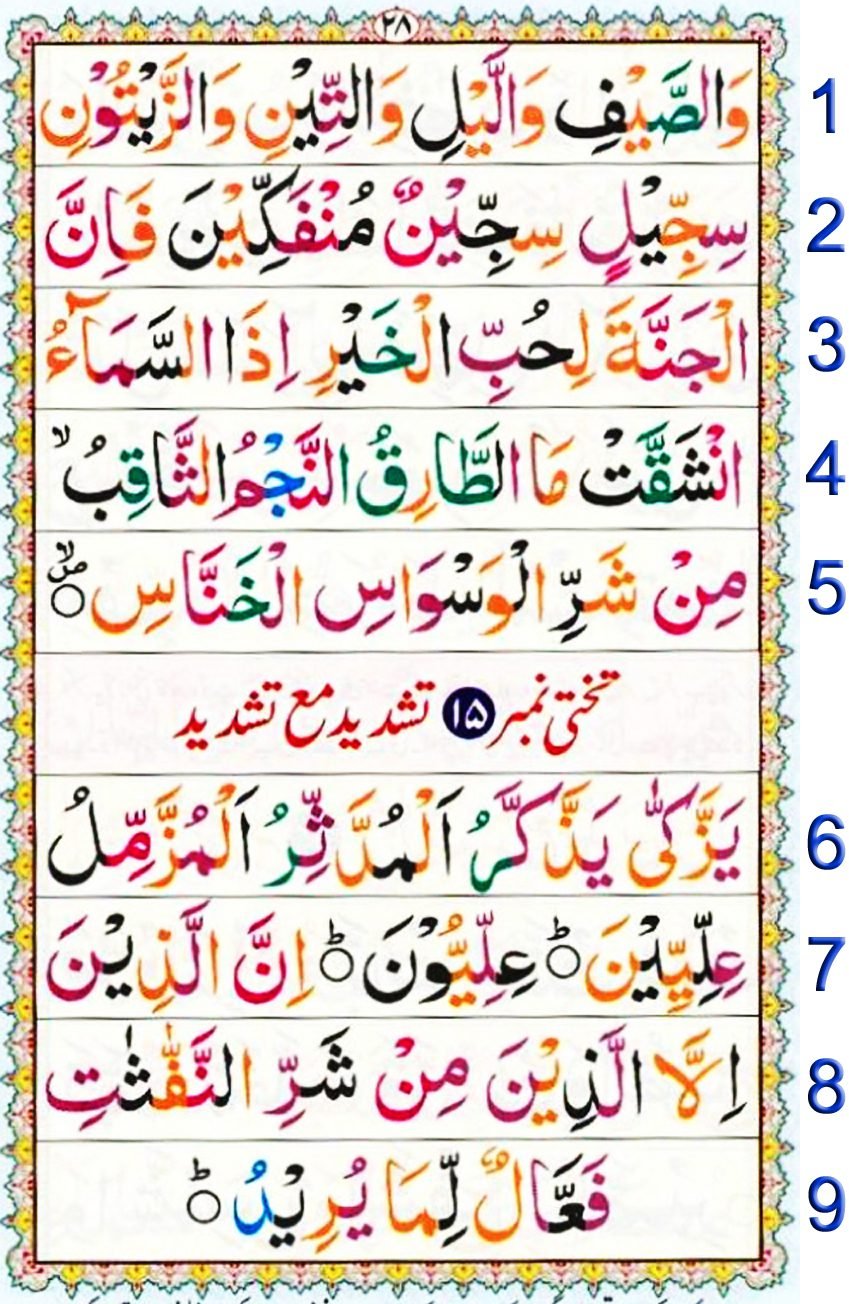 ٢٨
وَالصَّيْفِ وَالَّيْلِ وَالتِّيْنِ وَالزَّيْتُوْنِ 1
سِجِّيْلٍ سِجِّيْنٌ مُنْفَكِّيْنَ فَاِنَّ 2
الْجَنَّةَ لِحُبِّ الْخَيْرِ اِذَا السَّمَآءُ 3
انْشَقَّتْ مَا الطَّارِقُ النَّجْمُ الثَّاقِبُ ۙ 4
مِنْ شَرِّ الْوَسْوَاسِ الْخَنَّاسِ ۙ۬ۙ○ 5
تختی نمبر ۱۵ تشدید مع تشدید
يَزَّكّٰى يَذَّكَّرُ اَلْمُدَّثِّرُ اَلْمُزَّمِّلُ 6
عِلِّيِّيْنَ ○ؕ عِلِّيُّوْنَ ○ؕ اِنَّ الَّذِيْنَ 7
اِلَّا الَّذِيْنَ مِنْ شَرِّ النَّفّٰثٰتِ 8
فَعَّالٌ لِّمَا يُرِيْدُ ○ؕ 9